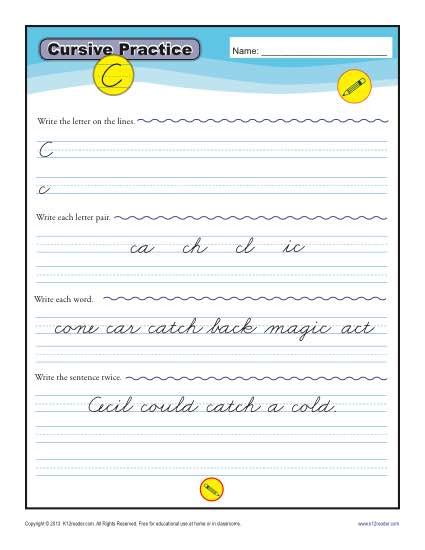 Cursive Practice
Name: ____________________
C
Write the letter on the lines.
C
c
Write each letter pair.
ca ch cl ic
Write each word.
cone car catch back magic act
Write the sentence twice.
Cecil could catch a cold.
Copyright © 2013 K12reader.com. All Rights Reserved. Free for educational use at home or in classrooms.
www.k12reader.com